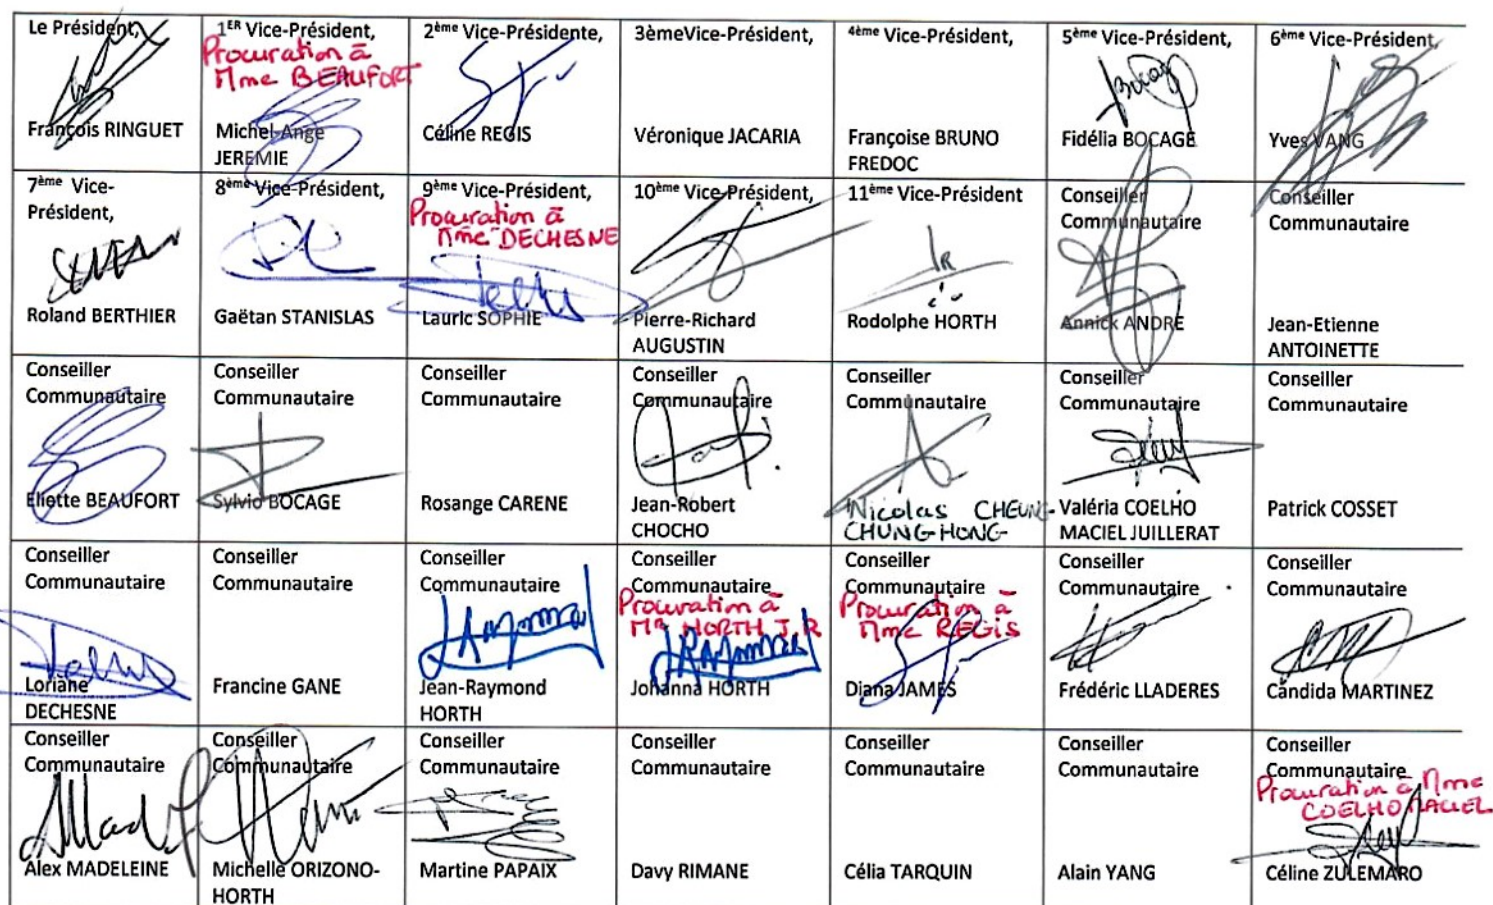 Le Président,
François RINGUET
1ER Vice-Président,
Procuration à
Mme BEAUFORT
Michel-Ange
JEREMIE
2ème Vice-Présidente,
Céline REGIS
3èmeVice-Président,
Véronique JACARIA
4ème Vice-Président,
Françoise BRUNO
FREDOC
5ème Vice-Président,
Fidélia BOCAGE
6ème Vice-Président,
Yves VANG
7ème Vice-
Président,
Roland BERTHIER
8ème Vice-Président,
Gaëtan STANISLAS
9ème Vice-Président,
Procuration à
Mme DECHESNE
Lauric SOPHIE
10ème Vice-Président,
Pierre-Richard
AUGUSTIN
11ème Vice-Président
Rodolphe HORTH
Conseiller
Communautaire
Annick ANDRE
Conseiller
Communautaire
Jean-Etienne
ANTOINETTE
Conseiller
Communautaire
Eliette BEAUFORT
Conseiller
Communautaire
Sylvio BOCAGE
Conseiller
Communautaire
Rosange CARENE
Conseiller
Communautaire
Jean-Robert
CHOCHO
Conseiller
Communautaire
Nicolas CHEUNG-
CHUNG-HONG
Conseiller
Communautaire
Valéria COELHO
MACIEL JUILLERAT
Conseiller
Communautaire
Patrick COSSET
Conseiller
Communautaire
Loriane
DECHESNE
Conseiller
Communautaire
Francine GANE
Conseiller
Communautaire
Jean-Raymond
HORTH
Conseiller
Communautaire
Procuration à
MR HORTH J.R
Johanna HORTH
Conseiller
Communautaire
Procuration à
Mme REGIS
Diana JAMES
Conseiller
Communautaire
Frédéric LLADERES
Conseiller
Communautaire
Cändida MARTINEZ
Conseiller
Communautaire
Alex MADELEINE
Conseiller
Communautaire
Michelle ORIZONO-
HORTH
Conseiller
Communautaire
Martine PAPAIX
Conseiller
Communautaire
Davy RIMANE
Conseiller
Communautaire
Célia TARQUIN
Conseiller
Communautaire
Alain YANG
Conseiller
Communautaire
Procuration à Mme
COELHO MACIEL
Céline ZULEMARO